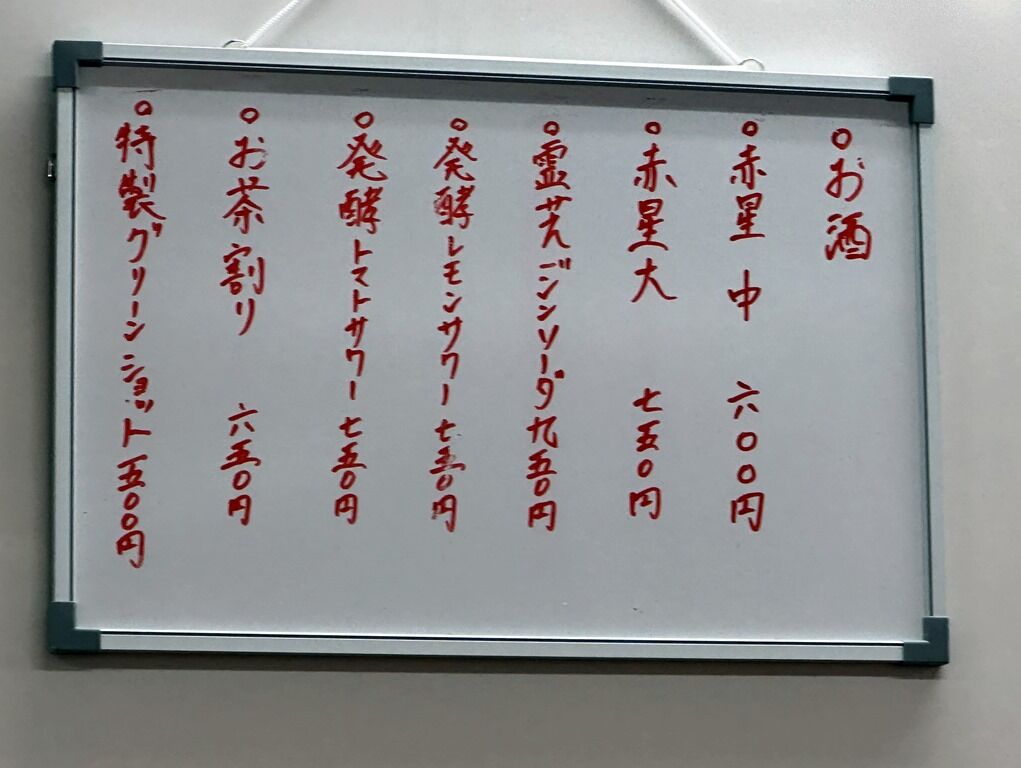 ○お酒
○赤星 中 六〇〇円
○赤星大 七五〇円
○霊せんジンソーダ九五〇円
○発酵レモンサワー七五〇円
○発酵トマトサワー七五〇円
○お茶割り 六五〇円
○特製グリーンショット一五〇〇円